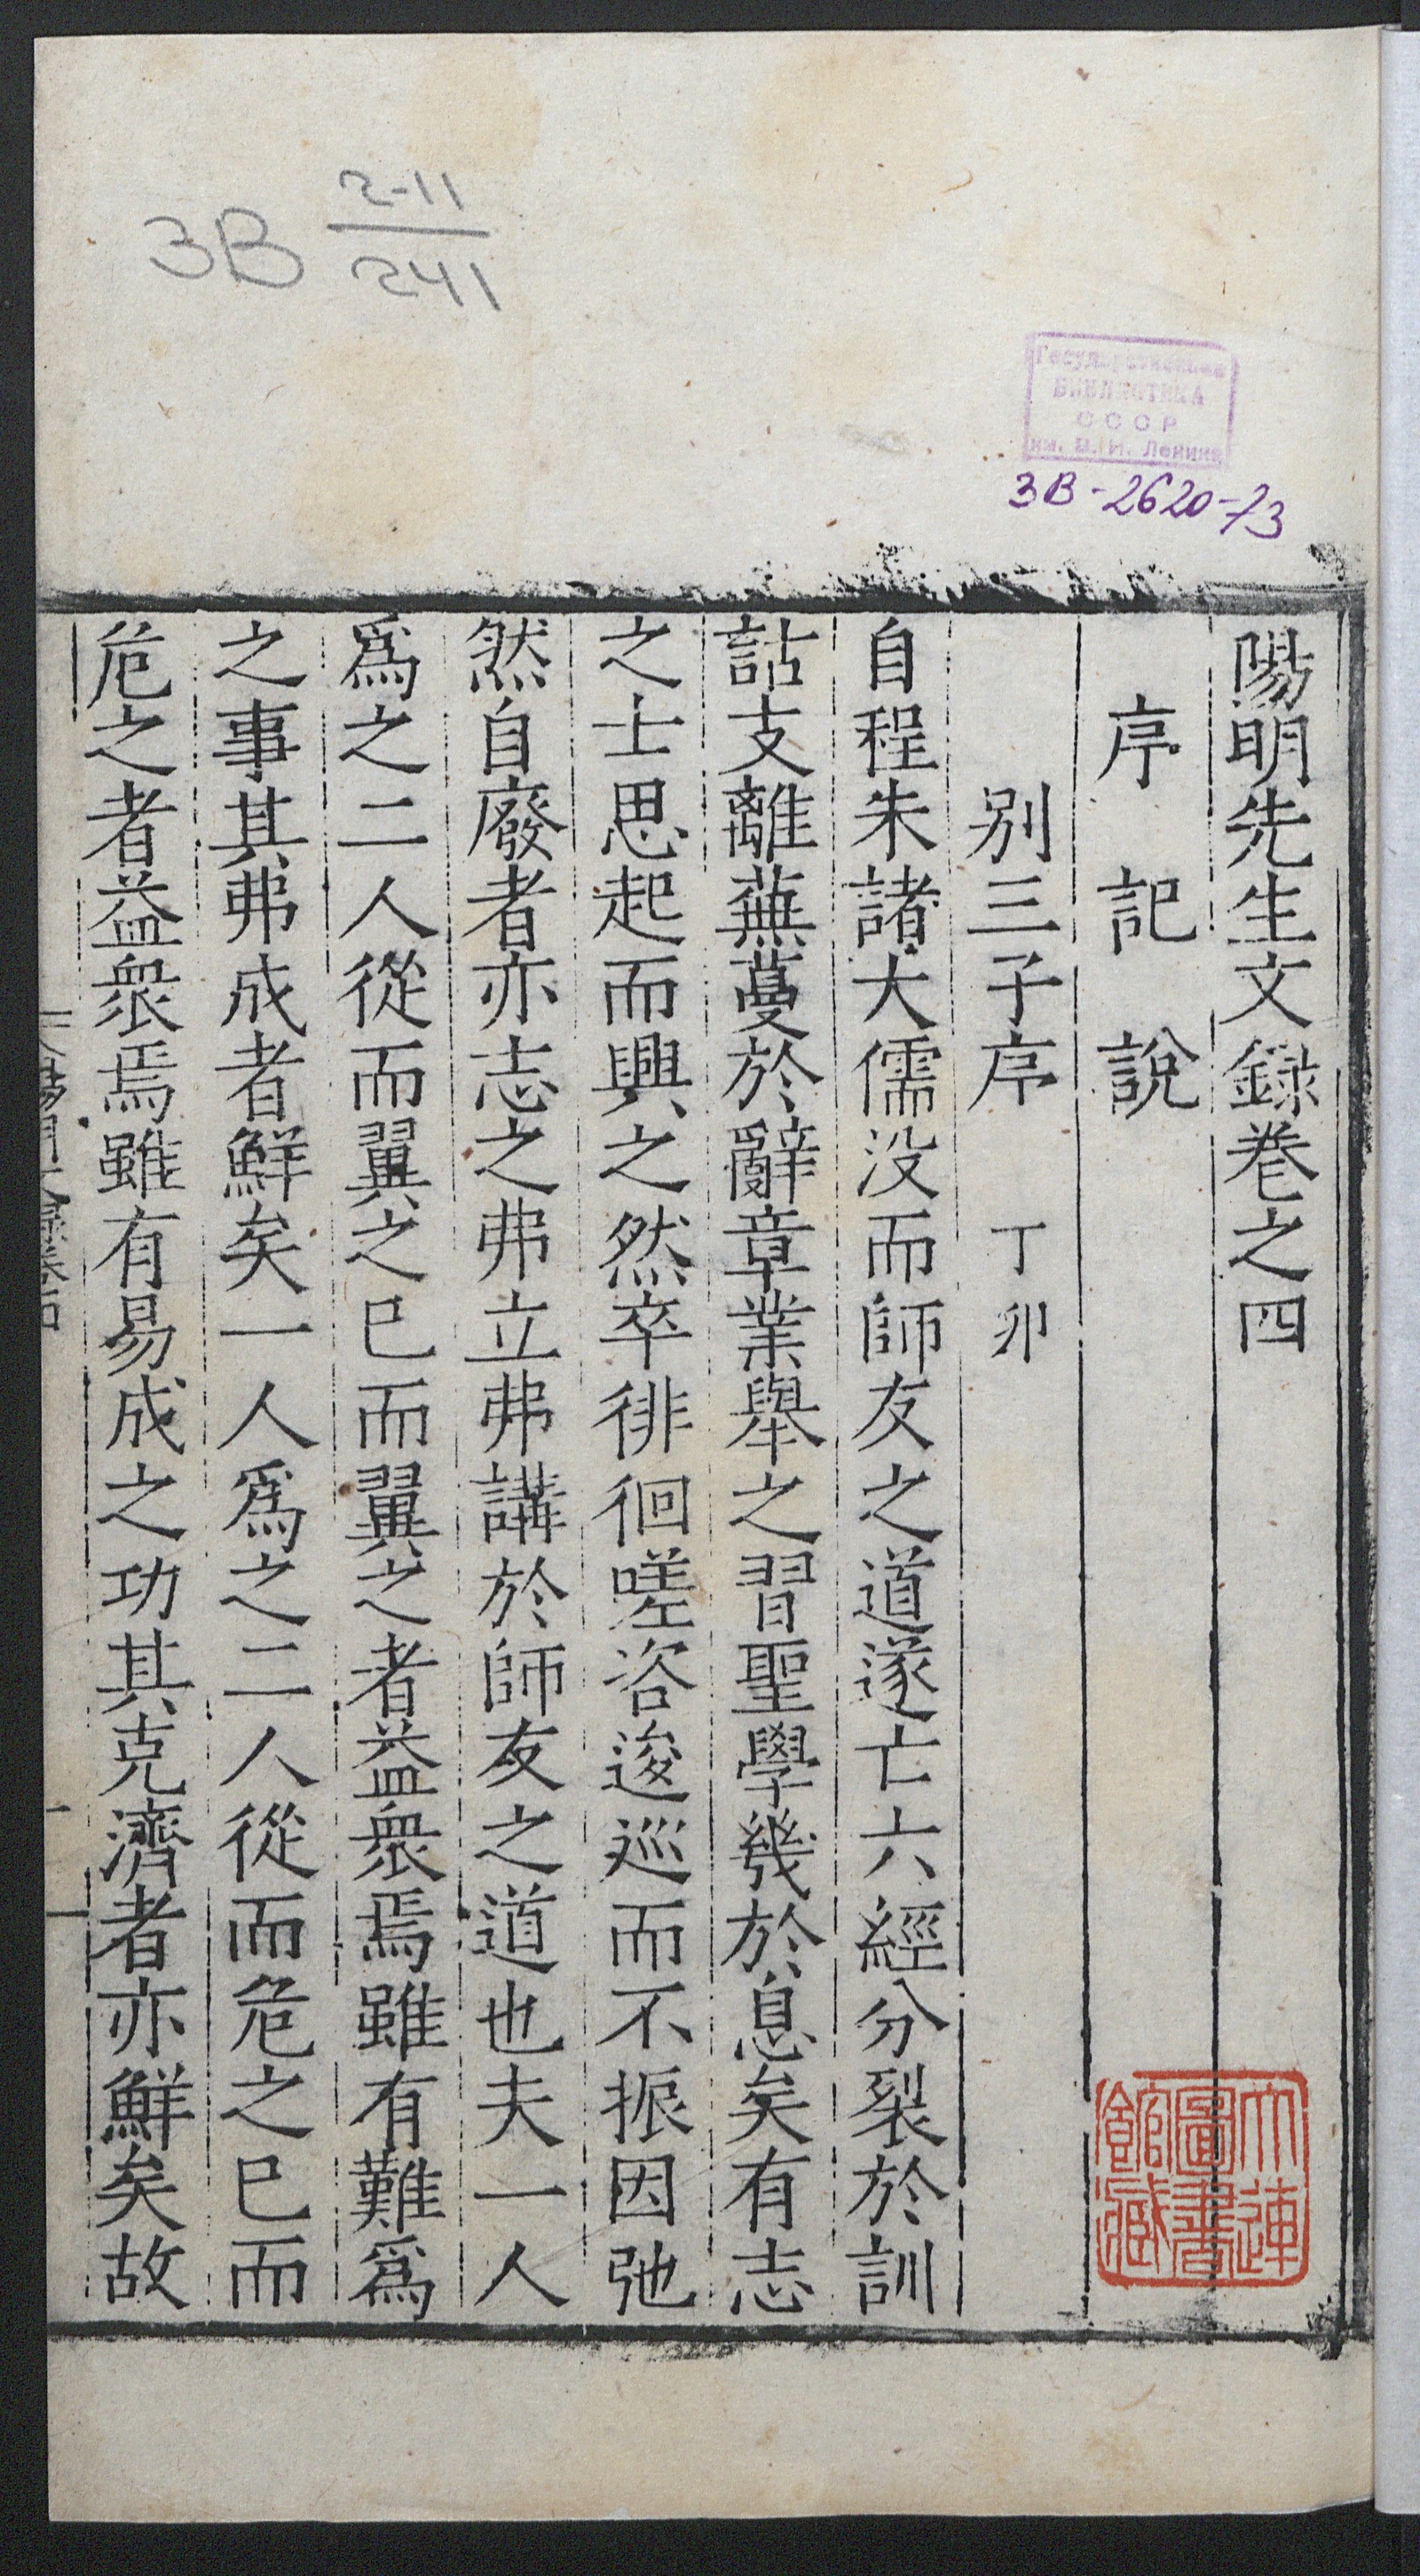 陽明先生文録巻之四
序 記 說
别三子序 丁卯
自程朱諸大儒没而師友之道遂亡六經分裂於訓
詁支離蕪蔓於辭章業舉之習聖學幾於息矣有志
之士思起而興之然卒徘徊嗟咨逡巡而不振因弛
然自廢者亦志之弗立弗講於師友之道也夫一人
爲之二人從而翼之已而翼之者益衆焉雖有難爲
之事其弗成者鮮矣一人爲之二人從而危之已而
危之者益衆焉雖有易成之功其克濟者亦鮮矣故
大連圖書館藏
ЗВ 2-11
241
Государственная
БИБЛИОТЕКА
СССР
им. В. И. Ленина
ЗВ-2620-73